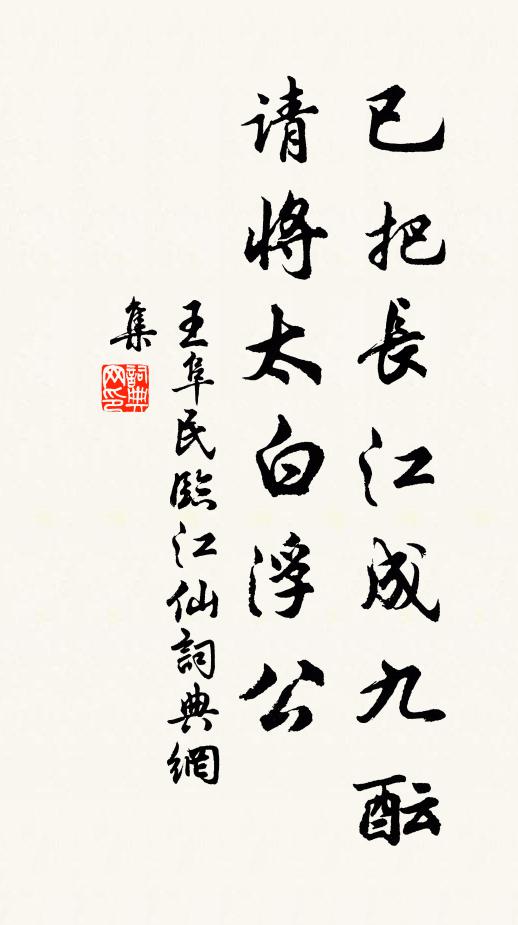 已把長江成九酝
请将太白浮公
王阜民臨江仙詞典網
集
詞典
网印